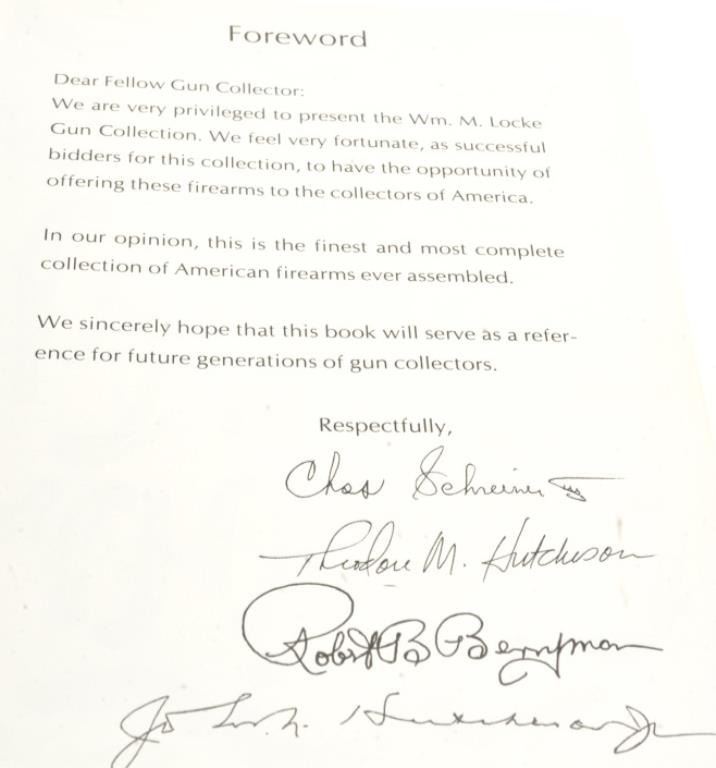 Foreword
Dear Fellow Gun Collector:
We are very privileged to present the Wm. M. Locke
Gun Collection. We feel very fortunate, as successful
bidders for this collection, to have the opportunity of
offering these firearms to the collectors of America.
In our opinion, this is the finest and most complete
collection of American firearms ever assembled.
We sincerely hope that this book will serve as a refer-
ence for future generations of gun collectors.
Respectfully,
Chas Schreiner III
Theodore M. Hutcheson
Robert B Berryman
Jr